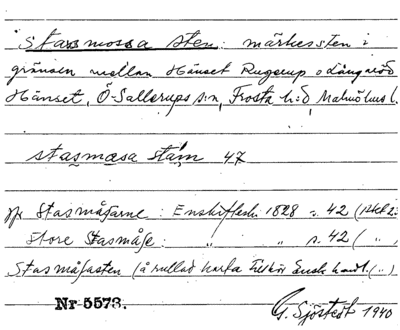 Stasmossa sten: märkessten i
gränsen mellan Hänset Rugerup o Långaröd
Hänset, Ö-Sallerups s:n, Frosta h:d Malmöhus l.
stasmosa sta'm 47
jfr Stasmåsarne: Enskiftesk. 1828 s. 42 (
Store Stasmåse: " " s. 42 ( "
Stasmåsasten (å rullad karta
Nr 5573.
G. Sjöstedt 1940